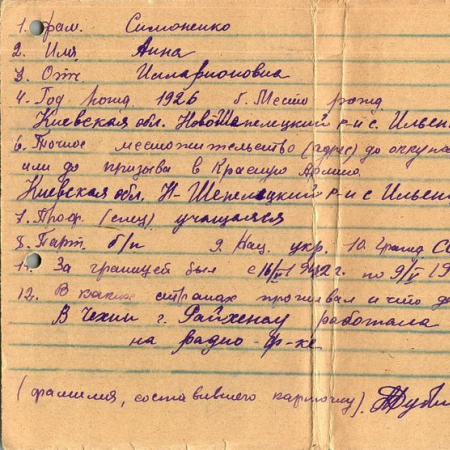 1. Фам. Симоненко
2. Имя Анна
3. Отч. Илларионовна
4. Год рожд. 1926 5. Место рожд.
Киевская обл. НовоШепелецкий р-н с. Ильен
6. Точное местожительство (адрес) до оккупа
или до призыва в Красную Армию.
Киевская обл. Н-Шепелецкий р-н с Ильен
7. Проф. (спец) учащаяся
8. Парт. б/п 9. Нац. укр. 10. Гражд. Сс
11. За границей был с 16/V 1942 г. по 9/V 19
12. В каких странах проживал и что де
В Чехии г. Райхенау работала
на радио-ф-ке
(фамилия, составившего карточку).